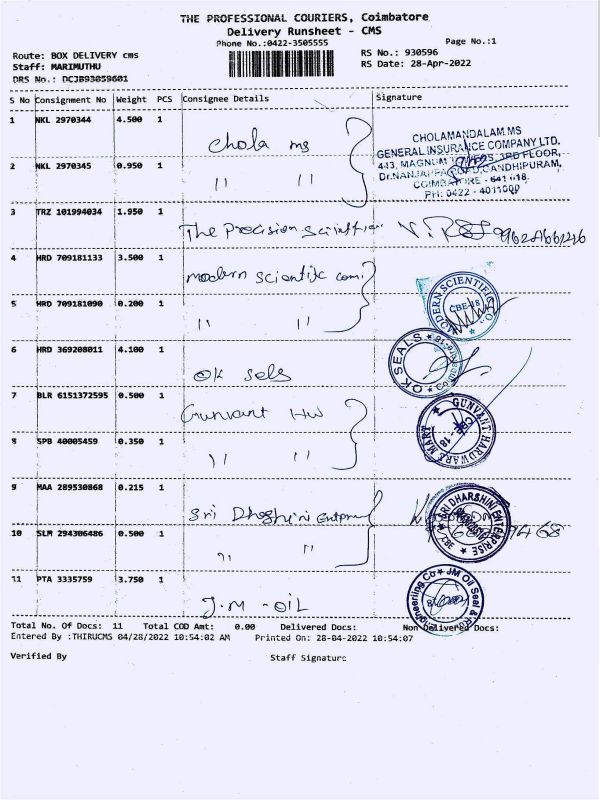 THE PROFESSIONAL COURIERS, Coimbatore
Delivery Runsheet - CMS
Phone No.:0422-3505555
Page No.:1
Route: BOX DELIVERY cms
RS No.: 930596
Staff: MARIMUTHU
RS Date: 28-Apr-2022
DRS No.: DCJB93059601
S No Consignment No Weight PCS Consignee Details Signature
1 NKL 2970344 4.500 1 Chola ms
CHOLAMANDALAM MS
GENERAL INSURANCE COMPANY LTD.
443, MAGNUM TOWERS, 3RD FLOOR,
Dr.NANJAPPA ROAD, GANDHIPURAM,
COIMBATORE - 641 018.
PH: 0422 - 4011000
2 NKL 2970345 0.950 1 " "
3 TRZ 101994034 1.950 1 The Precision Scientific
4 HRD 709181133 3.500 1 modern scientific com
MODERN SCIENTIFIC CO
CBE-18
5 HRD 709181090 0.200 1 " "
6 HRD 369208011 4.100 1 OK Sels
OK SEALS
7 BLR 6151372595 0.500 1 Gunvant HW
GUNVANT HARDWARE MART
CBE - 18
8 SPB 40005459 0.350 1 " "
9 MAA 289530868 0.215 1 Sri Dhoshini
SRI DHARSHINI ENTERPRISE
10 SLM 294306486 0.500 1 " "
11 PTA 3335759 3.750 1 J.M - OIL
JM Oil Seal & Engineering Co
Total No. Of Docs: 11 Total COD Amt: 0.00 Delivered Docs: Non Delivered Docs:
Entered By :THIRUCMS 04/28/2022 10:54:02 AM Printed On: 28-04-2022 10:54:07
Verified By Staff Signature